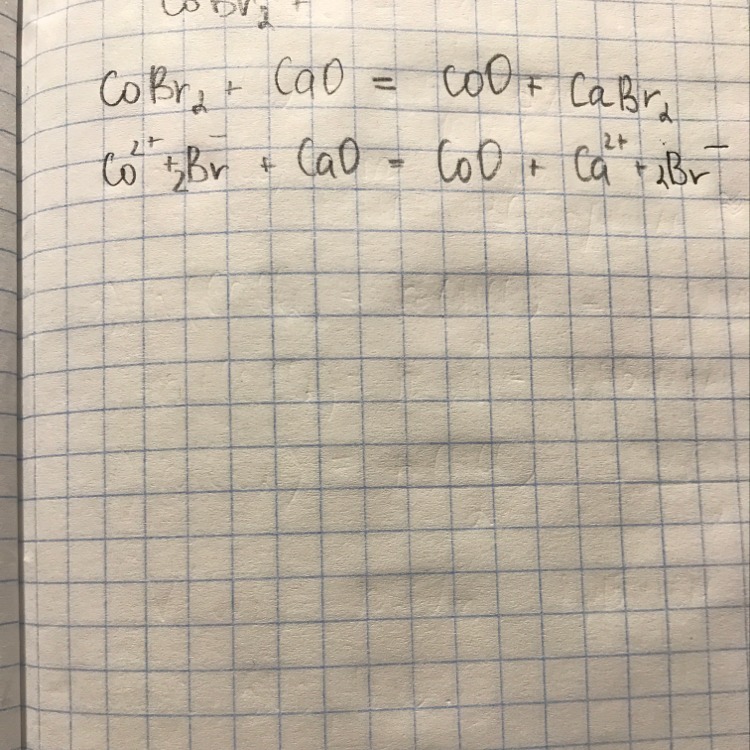 CoBr₂ +
CoBr₂ + CaO = CoO + CaBr₂
Co²⁺ + 2Br⁻ + CaO = CoO + Ca²⁺ + 2Br⁻